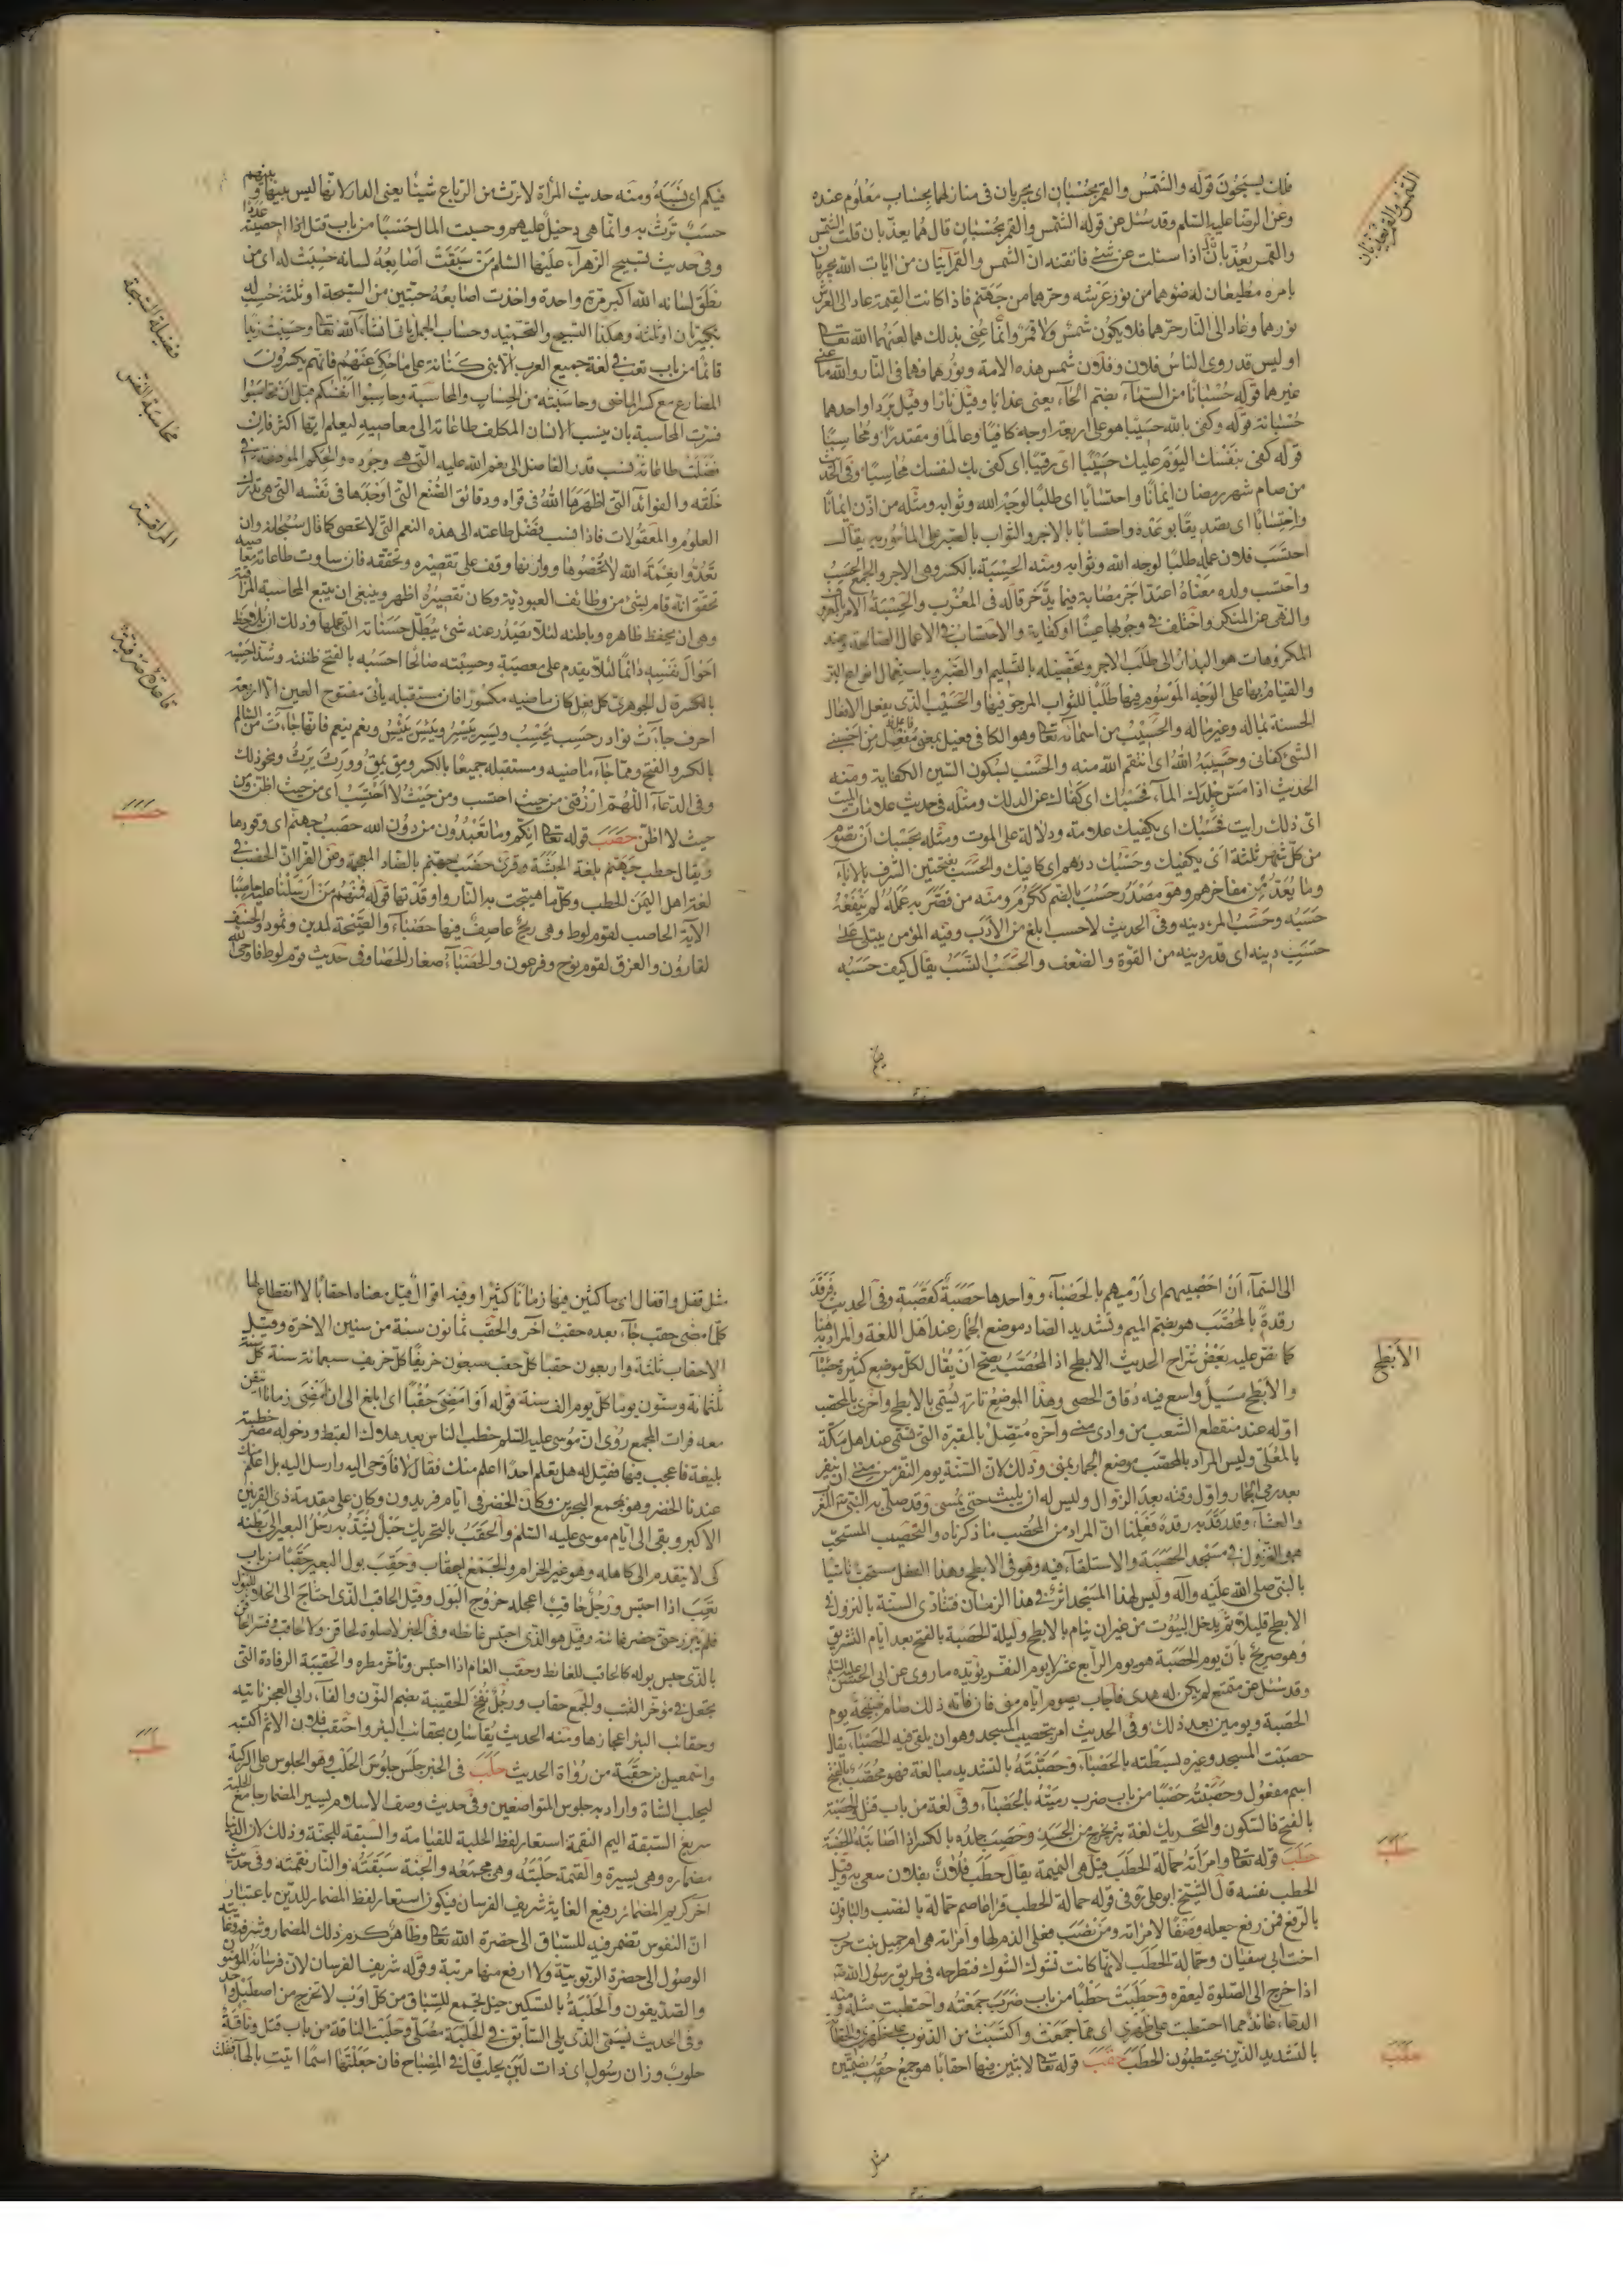 فلك يسبحون قوله والشمس والقمر بحسبان اى يجريان فى منازلهما بحساب معلوم عنده
وعن الرضا عليه السلم وقد سئل عن قوله الشمس والقمر بحسبان قال هما يعذبان قلت الشمس
والقمر يعذبان قال اذا سئلت عن شئ فاتقنه ان الشمس والقمر آيتان من ايات الله يجريان
بامره مطيعان له ضوءهما من نور عرشه وحرهما من جهنم فاذا كانت القيمة عاد الى العرش
نورهما وعاد الى النار حرهما فلا يكون شمس ولا قمر وانما عنى بذلك هما لعنهما الله تعا
اوليس قد روى الناس فلان وفلان شمس هذه الامة ونورهما وهما فى النار والله ما عنى
غيرهما قوله حسبانا من السماء بضم الحاء يعنى عذابا وقيل نارا وقيل بردا واحدها
حسبانة قوله وكفى بالله حسيبا هو على اربعة اوجه كافيا وعالما ومقتدرا ومحاسبا
قوله كفى بنفسك اليوم عليك حسيبا اى رقيبا اى كفى بك لنفسك محاسبا وفى الحديث
من صام شهر رمضان ايمانا واحتسابا اى طلبا لوجه الله وثوابه ومثله من اذن ايمانا
واحتسابا اى تصديقا بوعده واحتسابا بالاجر والثواب بالصبر على المأمور به يقال
احتسب فلان عمله طلبا لوجه الله وثوابه ومنه الحسبة بالكسر وهى الاجر والجمع الحسب
واحتسب ولده معناه اعتد اجر مصابه فيما يدخر قاله فى المغرب والحسبة الامر بالمعروف
والنهى عن المنكر واختلف فى وجوبها عينا او كفاية والاحتساب فى الاعمال الصالحة وعند
المكروهات هو البدار الى طلب الاجر وتحصيله بالتسليم او الصبر وباستعمال انواع البر
والقيام بها على الوجه المرسوم فيها طلبا للثواب المرجو فيها والحسيب الذى يفعل الافعال
الحسنة بماله وغير ماله والحسيب من اسمائه تعا وهو الكافى فعيل بمعنى مفعل من احسبنى
الشئ كفانى وحسيبه الله اى انتقم الله منه والحسب بسكون السين الكفاية ومنه
الحديث اذا مس جلدك الماء فحسبك اى كفاك عن الدلك ومثله فى حديث علامات الميت
اى ذلك رايت فحسبك اى يكفيك علامته ودلالة على الموت ومثله بحسبك ان تصوم
من كل شهر ثلثة اى يكفيك وحسبك درهم اى كافيك والحسب بفتحتين الشرف بالاباء
وما يعد من مفاخرهم وهو مصدر حسب بالضم ككرم ومنه من قصر به عمله لم ينفعه
حسبه وحسب المرء دينه وفى الحديث لا حسب ابلغ من الادب وفيه المؤمن يبتلى على
حسب دينه اى قدر دينه من القوة والضعف والحسب النسب يقال كيف حسبه
الشمس والقمر يعذبان
فيكم اى نسبه ومنه حديث المرأة لا ترث من الرباع شيئا يعنى الدار لانها ليس بينها وبينهم
حسب ترث به وانما هى دخيل عليهم وحسبت المال حسبا من باب قتل اذا احصيته عددا
وفى حديث تسبيح الزهراء عليها السلم من سبقت اصابعه لسانه حسبت له اى من
نطق لسانه الله اكبر مرة واحدة واخذت اصابعه حبتين من السبحة او ثلثة حسب له
تكبيرتان او ثلثة وهكذا التسبيح والتحميد وحساب الجمل ياتى انشاء الله تعا وحسبت زيدا
قائما من باب تعب فى لغة جميع العرب الا بنى كنانة على ما حكى عنهم فانهم يكسرون
المضارع مع كسر الماضى وحاسبته من الحساب والمحاسبة وحاسبوا انفسكم قبل ان تحاسبوا
فسرت المحاسبة بان ينسب الانسان المكلف طاعاته الى معاصيه ليعلم ايها اكثر فان
فضلت طاعاته نسب قدر الفاضل الى نعم الله عليه التى هى وجوده والحكم المودعة فى
خلقه والفوائد التى اظهرها الله فى قواه ودقائق الصنع التى اوجدها فى نفسه التى هى تدرك
العلوم والمعقولات فاذا نسب فضل طاعته الى هذه النعم التى لا تحصى كما قال سبحانه وان
تعدوا نعمة الله لا تحصوها ووازنها وقف على تقصيره وتحققه فان ساوت طاعاته معاصيه
تحقق انه قام بشئ من وظائف العبودية وكان تقصيره اظهر وينبغى ان يتبع المحاسبة المراقبة
وهى ان يحفظ ظاهره وباطنه لئلا يصدر عنه شئ يبطل حسناته التى عملها وذلك ان يلاحظ
احوال نفسه دائما لئلا يقدم على معصية وحسبته صالحا احسبه بالفتح ظننته وشذ احسبه
بالكسر قال الجوهرى كل فعل كان ماضيه مكسورا فان مستقبله يأتى مفتوح العين الا اربعة
احرف جاءت نوادر حسب يحسب ويبس ييبس ويئس ييئس ونعم ينعم فانها جاءت من السالم
بالكسر والفتح ومما جاء ماضيه ومستقبله جميعا بالكسر ومق يمق وورث يرث ونحو ذلك
وفى الدعاء اللهم ارزقنى من حيث احتسب ومن حيث لا احتسب اى من حيث اظن ومن
حيث لا اظن حصب قوله تعا انكم وما تعبدون من دون الله حصب جهنم اى وقودها
ويقال حطب جهنم بلغة الحبشة وقرئ حضب جهنم بالضاد المعجمة وعن الفرا ان الحضب فى
لغة اهل اليمن الحطب وكل ما هيجت به النار واوقدتها قوله فمنهم من ارسلنا عليه حاصبا
الآية الحاصب لقوم لوط وهى ريح عاصف فيها حصباء والصيحة لمدين وثمود والخسف
لقارون والغرق لقوم نوح وفرعون والحصباء صغار الحصا وفى حديث قوم لوط فاوحى الله
فضيلة السبحة
محاسبة النفس
المراقبة
قاعدة صرفية
حصب
الى السماء ان احصبيهم اى ارميهم بالحصباء وواحدها حصبة كقصبة وفى الحديث فرقد
رقدة بالمحصب هو بضم الميم وتشديد الصاد موضع الجمار عند اهل اللغة والمراد به هنا
كما نص عليه بعض شراح الحديث الابطح اذ المحصب يصح ان يقال لكل موضع كثيرة حصباؤه
والابطح مسيل واسع فيه دقاق الحصى وهذا الموضع تارة يسمى بالابطح واخرى بالمحصب
اوله عند منقطع الشعب من وادى منى وآخره متصل بالمقبرة التى تسمى عند اهل مكة
بالمعلى وليس المراد بالمحصب موضع الجمار بمنى وذلك لان السنة يوم النفر من منى ان ينفر
بعد رمى الجمار واول وقته بعد الزوال وليس له ان يلبث حتى يمسى وقد صلى به النبى المغرب
والعشاء وقد رقد به رقدة فعلمنا ان المراد من المحصب ما ذكرناه والتحصيب المستحب
هو النزول فى مسجد الحصبة والاستلقاء فيه وهو فى الابطح وهذا الفعل مستحب تأسيا
بالنبى صلى الله عليه وآله وليس لهذا المسجد اثر فى هذا الزمان فتأدى السنة بالنزول فى
الابطح قليلا ثم يدخل البيوت من غير ان ينام بالابطح وليلة الحصبة بالفتح بعد ايام التشريق
وهو صريح بأن يوم الحصبة هو يوم الرابع عشر لا يوم النفر يؤيده ما روى عن ابى الحسن عليه السلم
وقد سئل عن متمتع لم يكن له هدى فاجاب يصوم ايام منى فان فاته ذلك صام صبيحة يوم
الحصبة ويومين بعد ذلك وفى الحديث امر بتحصيب المسجد وهو ان يلقى فيه الحصباء يقال
حصبت المسجد وغيره بسطته بالحصباء وحصبته بالتشديد مبالغة فهو محصب بالفتح
اسم مفعول وحصبته حصبا من باب ضرب رميته بالحصباء وفى لغة من باب قتل والحصبة
بالفتح فالسكون والتحريك لغة بثر يخرج من الجسد وحصب جلده بالكسر اذا اصابته الحصبة
حطب قوله تعا وامرأته حمالة الحطب قيل هى النميمة يقال حطب فلان بفلان سعى به وقيل
الحطب نفسه قال الشيخ ابو على ره فى قوله حمالة الحطب قرا عاصم حمالة بالنصب والباقون
بالرفع فمن رفع جعله وصفا لامرأته ومن نصب فعلى الذم لها وامرأته هى ام جميل بنت حرب
اخت ابى سفيان وحمالة الحطب لانها كانت تشوك الشوك فتطرحه فى طريق رسول الله
اذا خرج الى الصلوة ليعقره وحطبت حطبا من باب ضرب جمعته واحتطبت مثله ومنه
الدعاء عائد مما احتطبت على ظهرى اى مما جمعت واكتسبت من الذنوب على ظهرى والحطابة
بالتشديد الذين يحتطبون الحطب حقب قوله تعا لابثين فيها احقابا هو جمع حقب بضمتين
الأبطح
حطب
حقب
مثل
مثل قفل واقفال اى ماكثين فيها زمانا كثيرا وفيه اقوال قيل معناه احقابا لا انقطاع لها
كلما مضى حقب جاء بعده حقب آخر والحقب ثمانون سنة من سنين الاخرة وقيل
الاحقاب ثلثة واربعون حقبا كل حقب سبعون خريفا كل خريف سبعمائة سنة كل سنة
ثلثمائة وستون يوما كل يوم الف سنة قوله او امضى حقبا اى ابلغ الى ان امضى زمانا اتيقن
معه فوات المجمع روى ان موسى عليه السلم خطب الناس بعد هلاك القبط ودخوله مصر خطبة
بليغة فاعجب فيها فقيل له هل تعلم احدا اعلم منك فقال لا فاوحى اليه وارسل اليه بل اعلم
عندنا الخضر وهو بمجمع البحرين وكان الخضر فى ايام فريدون وكان على مقدمة ذى القرنين
الاكبر وبقى الى ايام موسى عليه السلم والحقب بالتحريك حبل يشد به رحل البعير الى بطنه
كى لا يتقدم الى كاهله وهو غير الحزام والجمع احقاب وحقب بول البعير حقبا من باب
تعب اذا احتبس ورجل حاقب اعجله خروج البول وقيل الحاقب الذى احتاج الى الخلاء للبول
فلم يتبرز حتى حضر غائطه وقيل هو الذى احتبس غائطه وفى الخبر لا صلوة لحاقن ولا لحاقب فسر الحاقن
بالذى حبس بوله كالحاقب للغائط وحقب العام اذا احتبس وتأخر مطره والحقيبة الرفادة التى
تجعل فى مؤخر القتب والجمع حقائب ورجل نفج الحقيبة بضم النون والفاء رابى العجز ناتيه
وحقائب البئر اعجازها ومنه الحديث واحتقب فلان الاثم اكتسبه
واسمعيل بن حقيبة من رواة الحديث حلب فى الخبر جلس جلوس الحلب وهو الجلوس على الركبة
ليحلب الشاة واراد به جلوس المتواضعين وفى حديث وصف الاسلام يسير المضمار جامع الحلبة
سريع السبقة اليم النقمة استعار لفظ الحلبة للقيامة والسبقة للجنة وذلك لان الدنيا
مضماره وهى يسيرة والقيمة حلبته وهى مجمعه والجنة سبقته والنار نقمته وفى حديث
آخر كريم المضمار رفيع الغاية شريف الفرسان فيكون استعار لفظ المضمار للدين باعتبار
ان النفوس تضمر فيه للسباق الى حضرة الله تعا وظاهر كرم ذلك المضمار وشرفه وغايته
الوصول الى حضرة الربوبية ولا ارفع منها مرتبة وقوله شريف الفرسان لان فرسانه المؤمنون
والصديقون والحلبة بالتسكين خيل تجمع للسباق من كل اوب لا تخرج من اصطبل واحد
وفى الحديث يسمى الذى يلى السابق فى الحلبة مصلى وحلبت الناقة من باب قتل وناقة
حلوب وزان رسول اى ذات لبن يحلب قال فى المصباح فان جعلتها اسما اتيت بالهاء فقلت
حلب